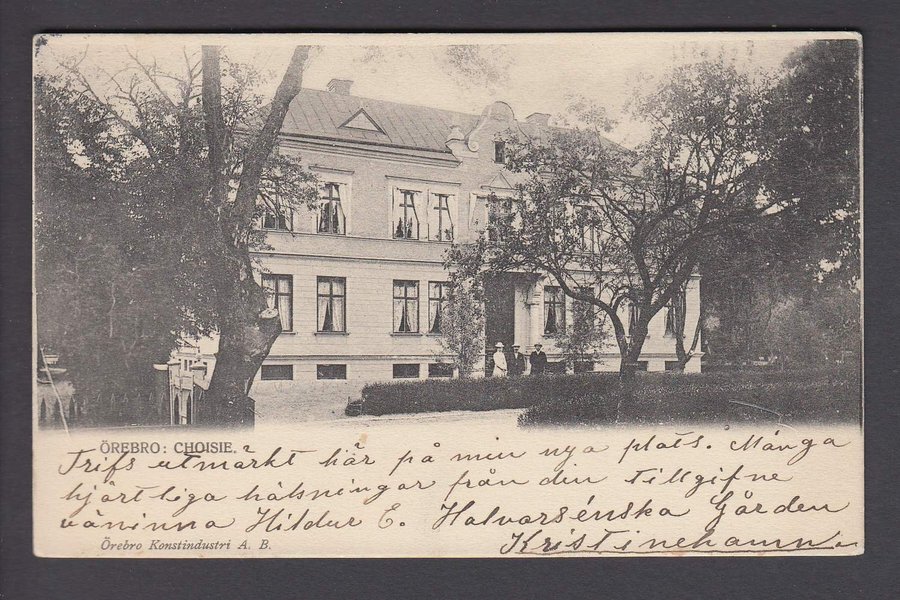 ÖREBRO: CHOISIE.
Trifs utmärkt här på min nya plats. Många
hjärtliga hälsningar från din tillgifne
väninna Hildur E. Halvarsénska Gården
Kristinehamn.
Örebro Konstindustri A. B.